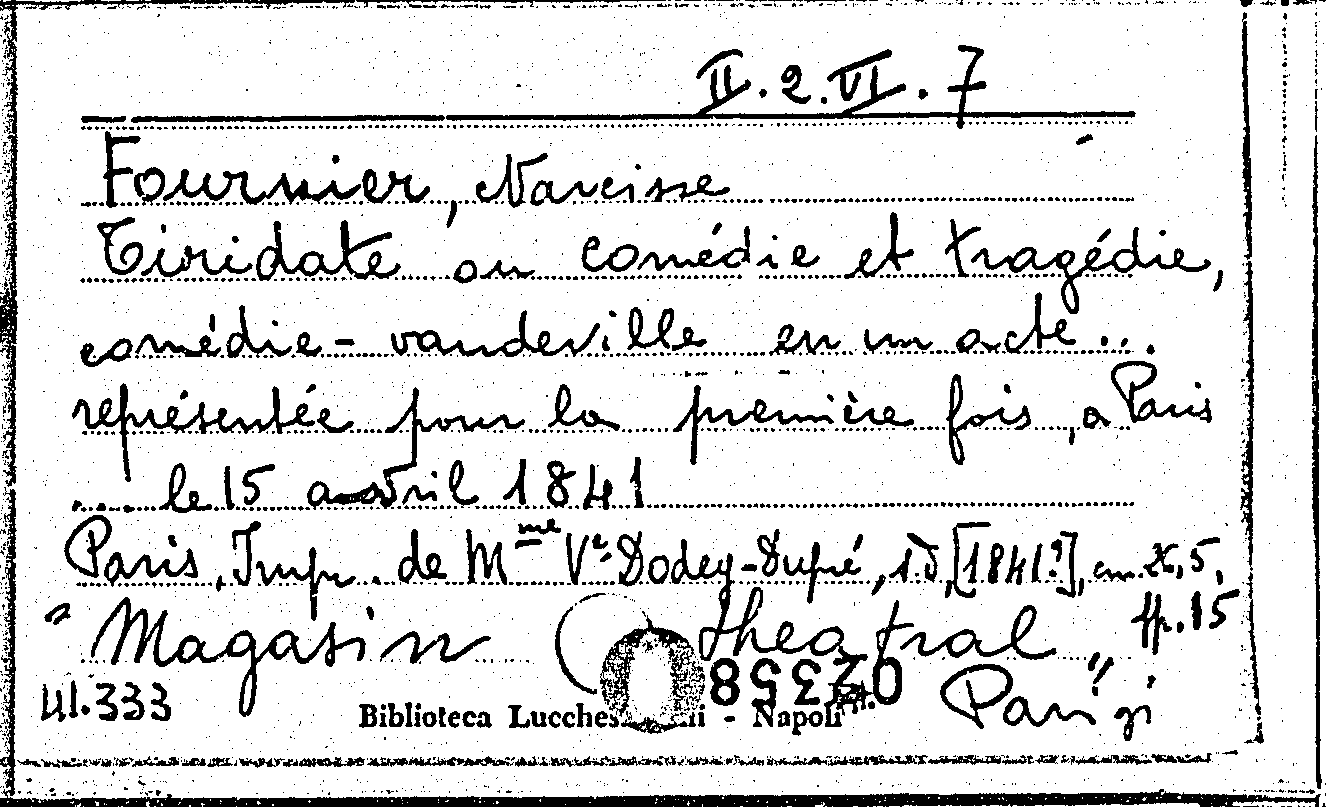 II.2.VI.7
Fournier, Narcisse
Tiridate ou comédie et tragédie,
comédie-vaudeville en un acte...
représentée pour la première fois, a Paris
... le 15 avril 1841
Paris, Impr. de Mme Ve Dodey-Dupré, s.d. [1841?], cm. 28,5,
"Magasin theatral" pp. 15
41.333 Biblioteca - Napoli Parigi
02358